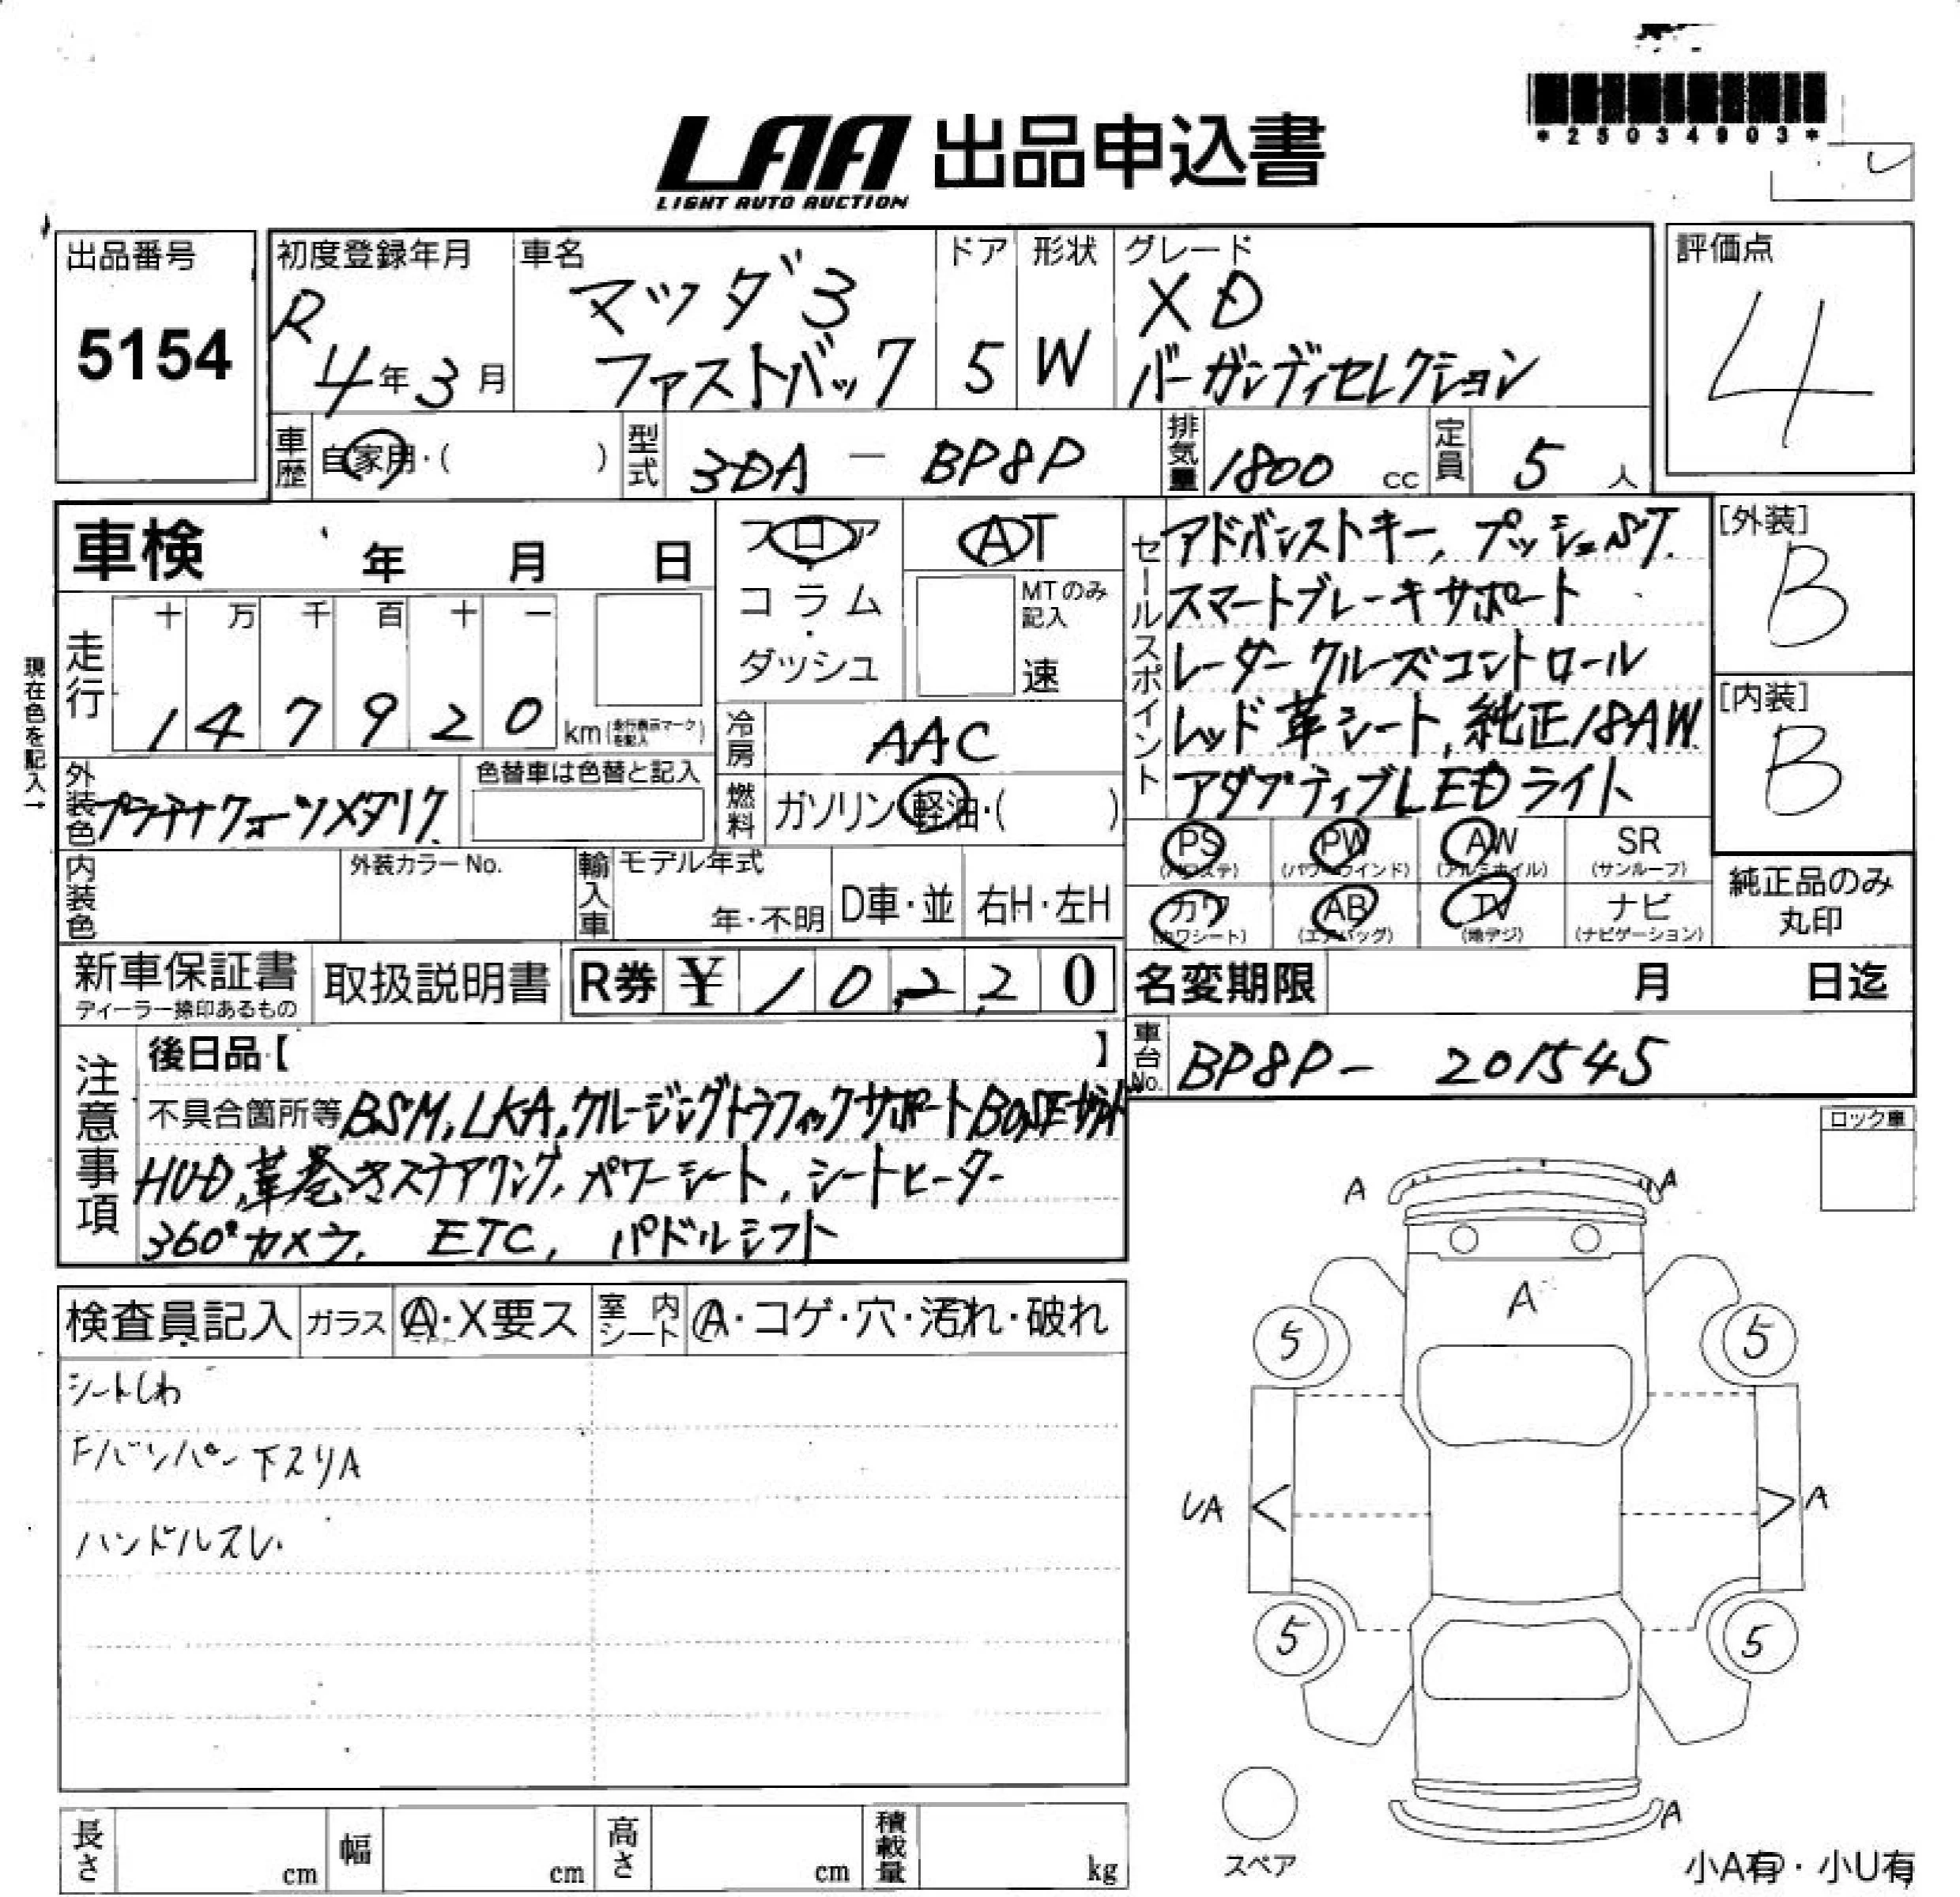 *25034903*
LAA 出品申込書
LIGHT AUTO AUCTION
出品番号
5154
初度登録年月
R
4年3月
車名
マツダ3
ファストバック
ドア
5
形状
W
グレード
XD
バーガンディセレクション
評価点
4
車歴
自家用・( )
型式
3DA - BP8P
排気量
1800 cc
定員
5 人
車検 年 月 日
フロア
・
コラム
・
ダッシュ
AT
MTのみ
記入
速
セールスポイント
アドバンストキー, プッシュST.
スマートブレーキサポート
レーダークルーズコントロール
レッド革シート, 純正18AW
アダプティブLEDライト
[外装]
B
[内装]
B
現在色を記入→
走行
十 万 千 百 十 一
1 4 7 9 2 0 km (走行表示マークを記入)
冷房
AAC
燃料
ガソリン・軽油・( )
外装色
プラチナクォーツメタリク
色替車は色替と記入
PS (パワステ)
PW (パワーウインド)
AW (アルミホイル)
SR (サンルーフ)
カワ (カワシート)
AB (エアバッグ)
TV (地デジ)
ナビ (ナビゲーション)
純正品のみ
丸印
内装色
外装カラーNo.
輸入車
モデル年式
年・不明
D車・並
右H・左H
新車保証書
ディーラー捺印あるもの
取扱説明書
R券 ¥ 10,220
名変期限 月 日迄
車台No.
BP8P- 201545
注意事項
後日品【 】
不具合箇所等 BSM, LKA, クルージングトラフィックサポート BOSE
HUD, 革巻きステアリング, パワーシート, シートヒーター
360°カメラ, ETC, パドルシフト
ロック車
検査員記入
ガラス
A・X要ス
室内シート
A・コゲ・穴・汚れ・破れ
シートしわ
Fバンパー下スリA
ハンドルスレ
A A
A
5 5
UA A
5 5
A
スペア
小A有・小U有
長さ cm
幅 cm
高さ cm
積載量 kg